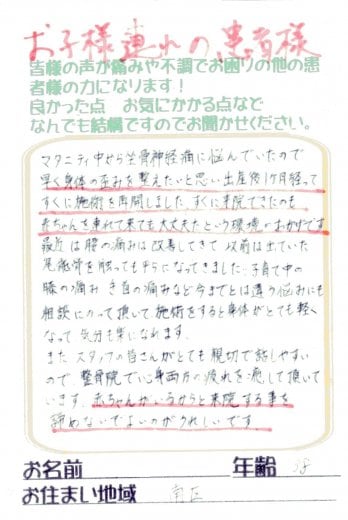 お子様連れの患者様
皆様の声が痛みや不調でお困りの他の患
者様の力になります！
良かった点　お気にかかる点など
なんでも結構ですのでお聞かせください。
マタニティ中から坐骨神経痛に悩んでいたので
早く身体の歪みを整えたいと思い出産後1ヶ月経って
すぐに施術を再開しました。すぐに来院できたのも
赤ちゃんを連れて来ても大丈夫という環境のおかげです
最近は腰の痛みは改善してきて以前は出ていた
尾骶骨を触っても平らになってきました。子育て中の
膝の痛み 手首の痛みなど今までとは違う悩みにも
相談にのって頂いて施術をすると身体がとても軽く
なって気分も楽になれます。
また スタッフの皆さんがとても親切で話しやすい
ので、整骨院で心身両方の疲れを癒して頂いて
います。赤ちゃんがいるからと来院する事を
諦めないでよいのがうれしいです。
お名前
年齢 38
お住まい地域 南区